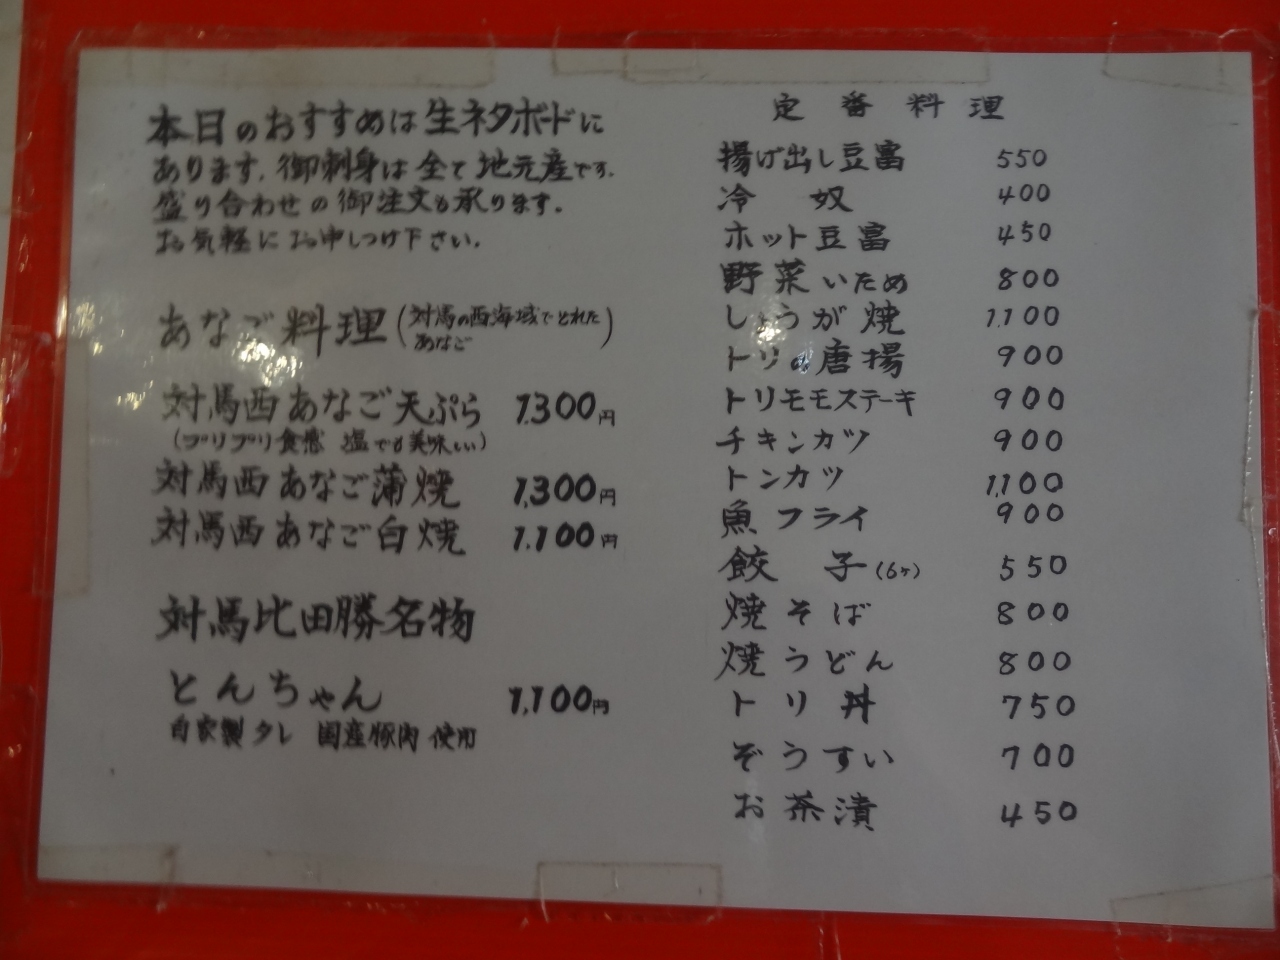 本日のおすすめは生ネタボードに
あります。御刺身は全て地元産です。
盛り合わせの御注文も承ります。
お気軽にお申しつけ下さい。
あなご料理(対馬の西海域でとれた
あなご)
対馬西あなご天ぷら 1,300円
(プリプリ食感 塩でも美味しい)
対馬西あなご蒲焼 1,300円
対馬西あなご白焼 1,100円
対馬比田勝名物
とんちゃん 1,100円
自家製タレ 国産豚肉使用
定番料理
揚げ出し豆富 550
冷奴 400
ホット豆富 450
野菜いため 800
しょうが焼 1,100
トリの唐揚 900
トリモモステーキ 900
チキンカツ 900
トンカツ 1,100
魚フライ 900
餃子(6ヶ) 550
焼そば 800
焼うどん 800
トリ丼 750
ぞうすい 700
お茶漬 450